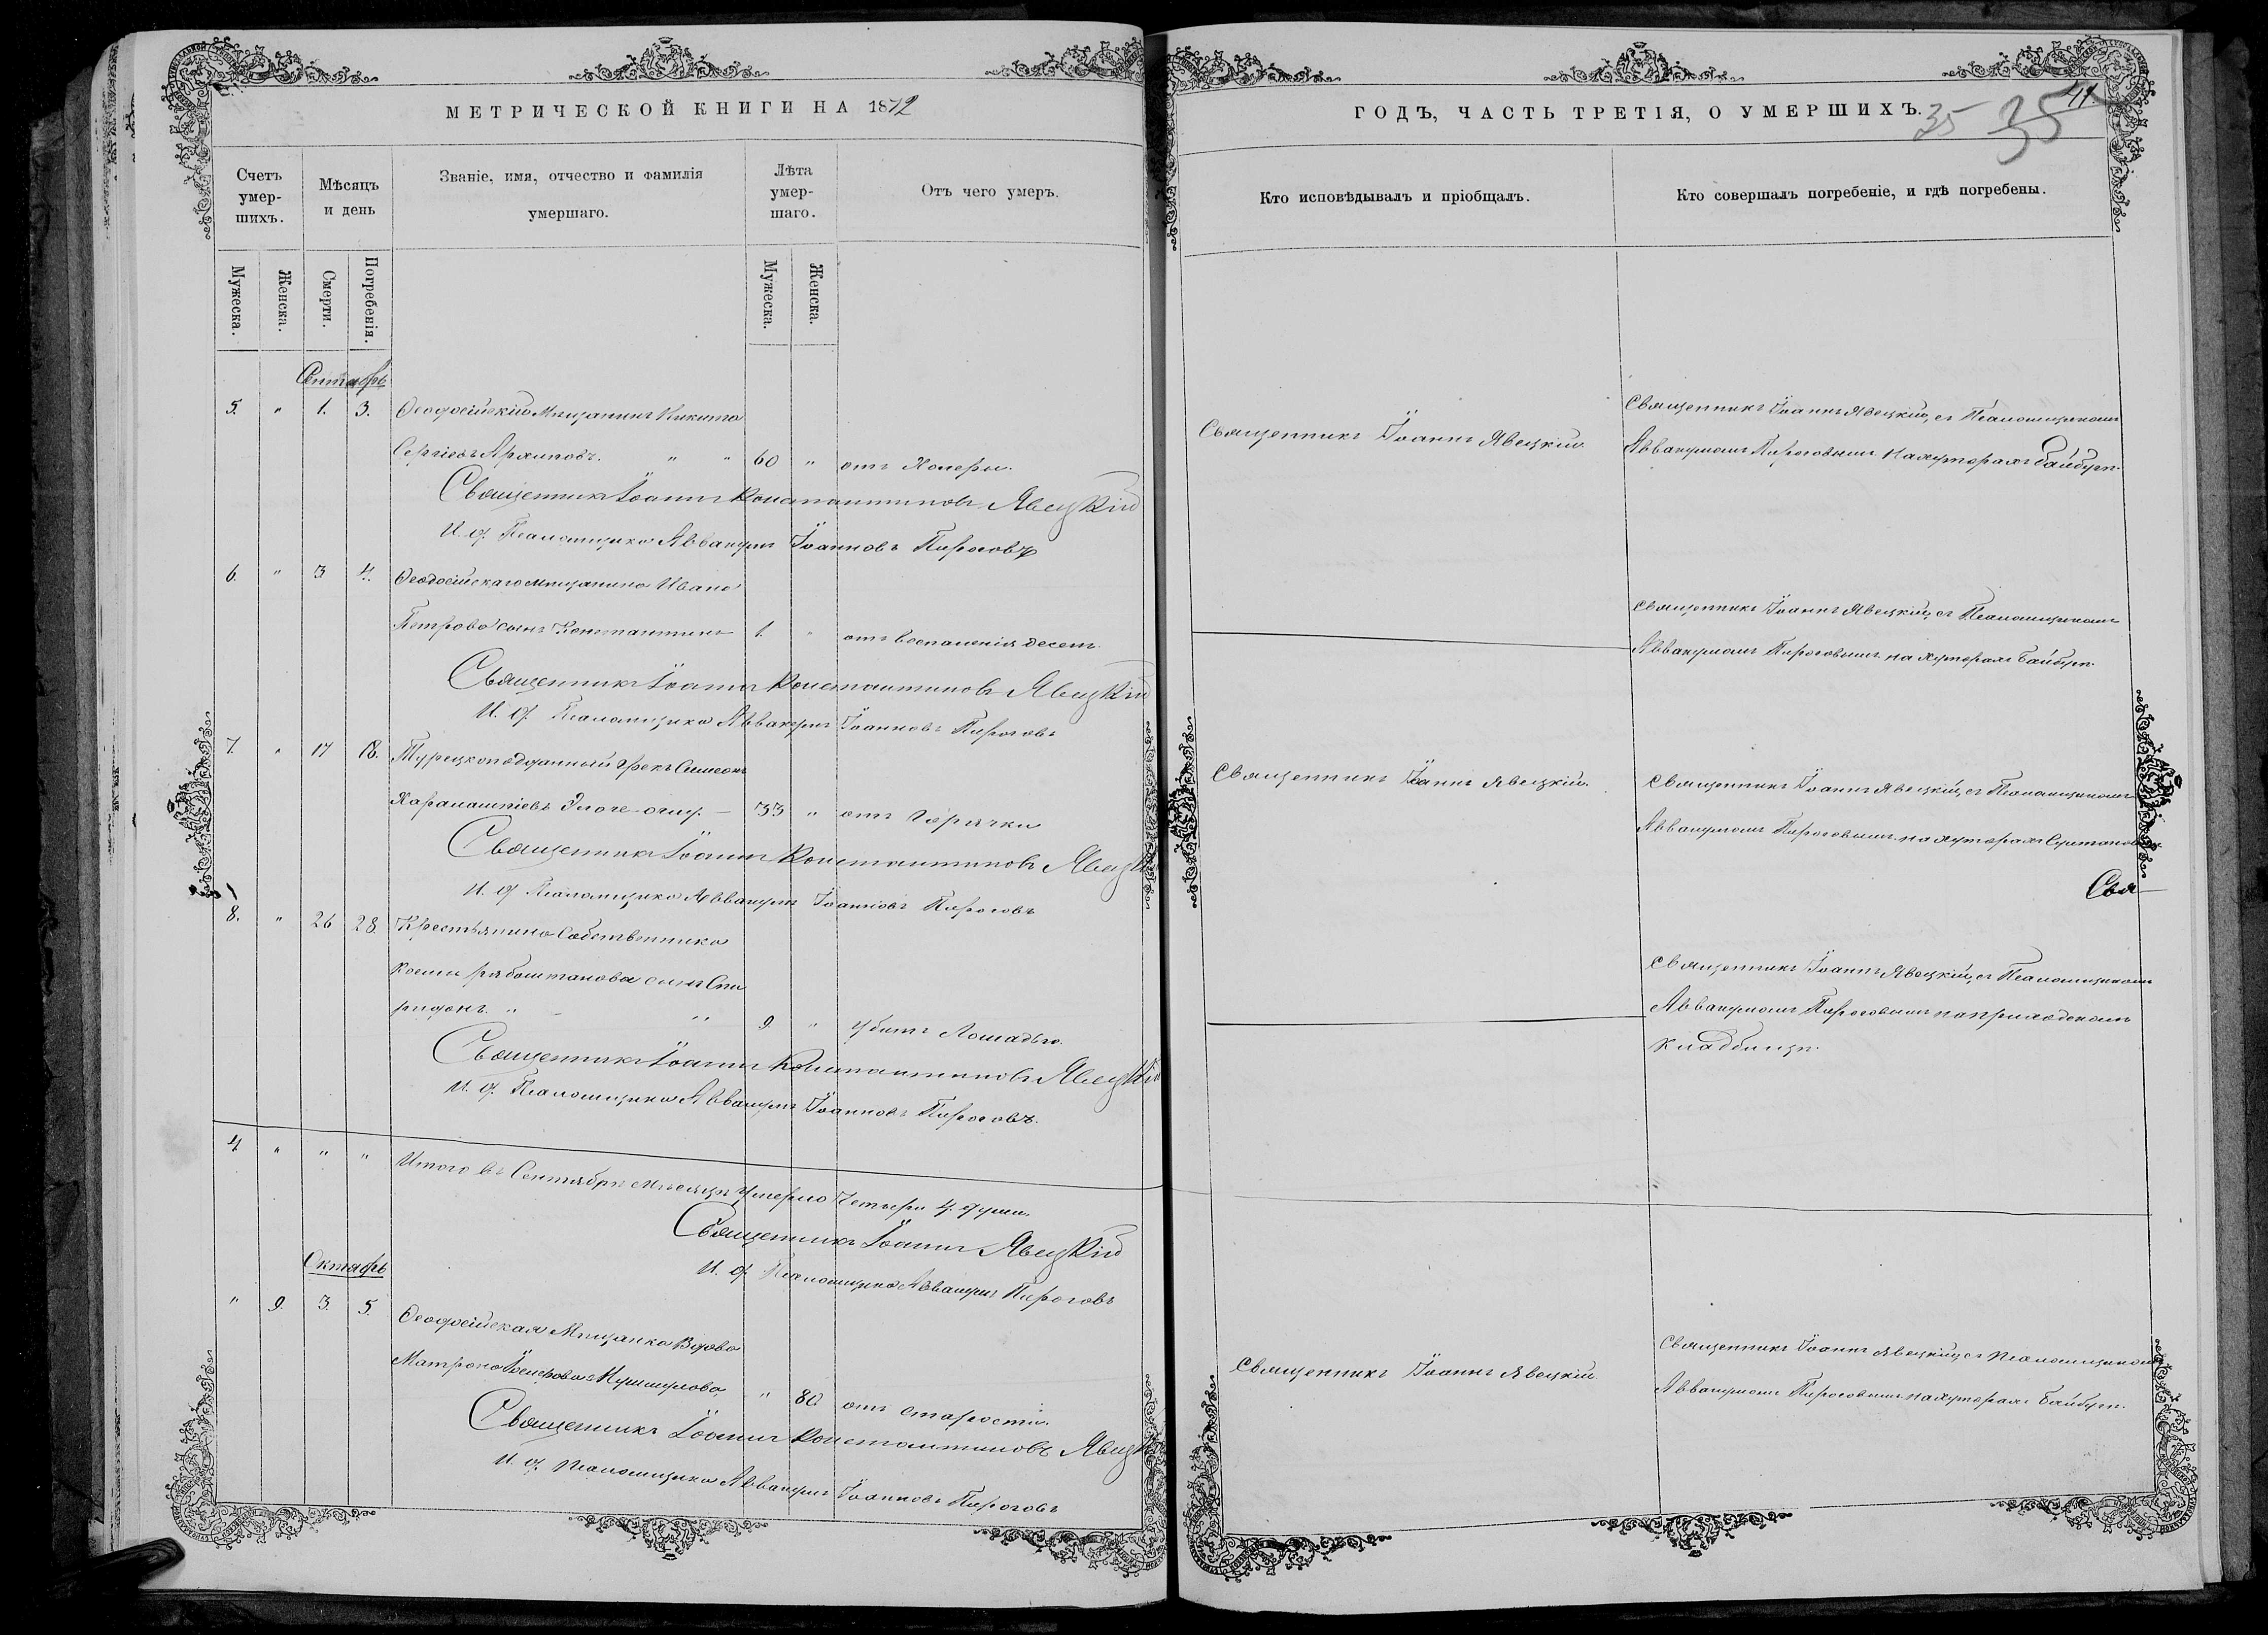 МЕТРИЧЕСКОЙ КНИГИ НА 1872
Счетъ умер-шихъ.
Мѣсяцъ и день
Званіе, имя, отчество и фамилія умершаго.
Лѣта умер-шаго.
Отъ чего умеръ.
Мужеска.
Женска.
Смерти.
Погребенія.
Мужеска.
Женска.
Сентябрь
5. " 1. 3. Ѳеодосійскій Мѣщанинъ Никита
Сергіевъ " " 60 " отъ Холеры.
Священникъ Іоаннъ Константиновъ Явецкій
И. д. Псаломщика Аввакумъ Іоанновъ Пироговъ
6. " 3 4. Ѳеодосійскаго мѣщанина Ивана
Петрова сынъ Константинъ 1. " отъ воспаленія десенъ.
Священникъ Іоаннъ Константиновъ Явецкій
И. д. Псаломщика Аввакумъ Іоанновъ Пироговъ
7. " 17 18. Турецкоподданный Грекъ Симеонъ
Харалампіевъ 33 " отъ Горячки
Священникъ Іоаннъ Константиновъ Явецкій
И. д. Псаломщика Аввакумъ Іоанновъ Пироговъ
8. " 26 28. Крестьянина Собственника
Козмы сынъ Спи
ридонъ. " " 9. " убитъ Лошадью.
Священникъ Іоаннъ Константиновъ Явецкій
И. д. Псаломщика Аввакумъ Іоанновъ Пироговъ.
4 " " " Итого въ Сентябрѣ мѣсяцѣ умерло Четыре 4. души.
Священникъ Іоаннъ Явецкій
И. д. Псаломщика Аввакумъ Пироговъ
Октябрь
" 9. 3. 5. Ѳеодосійская Мѣщанка Вдова
Матрона " 80 отъ старости.
Священникъ Іоаннъ Константиновъ Явецкій
И. д. Псаломщика Аввакумъ Іоанновъ Пироговъ
41.
ГОДЪ, ЧАСТЬ ТРЕТІЯ, О УМЕРШИХЪ.
35 35
Кто исповѣдывалъ и пріобщалъ.
Кто совершалъ погребеніе, и гдѣ погребены.
Священникъ Іоаннъ Явецкій.
Священникъ Іоаннъ Явецкій, съ Псаломщикомъ
Аввакумомъ Пироговымъ на хуторахъ Байбугѣ.
Священникъ Іоаннъ Явецкій, съ Псаломщикомъ
Аввакумомъ Пироговымъ на хуторахъ Байбугѣ.
Священникъ Іоаннъ Явецкій.
Священникъ Іоаннъ Явецкій, съ Псаломщикомъ
Аввакумомъ Пироговымъ на хуторахъ
Свя
Священникъ Іоаннъ Явецкій, съ Псаломщикомъ
Аввакумомъ Пироговымъ на приходскомъ
кладбищѣ.
Священникъ Іоаннъ Явецкій.
Священникъ Іоаннъ Явецкій, съ Псаломщикомъ
Аввакумомъ Пироговымъ на хуторахъ Байбугѣ.